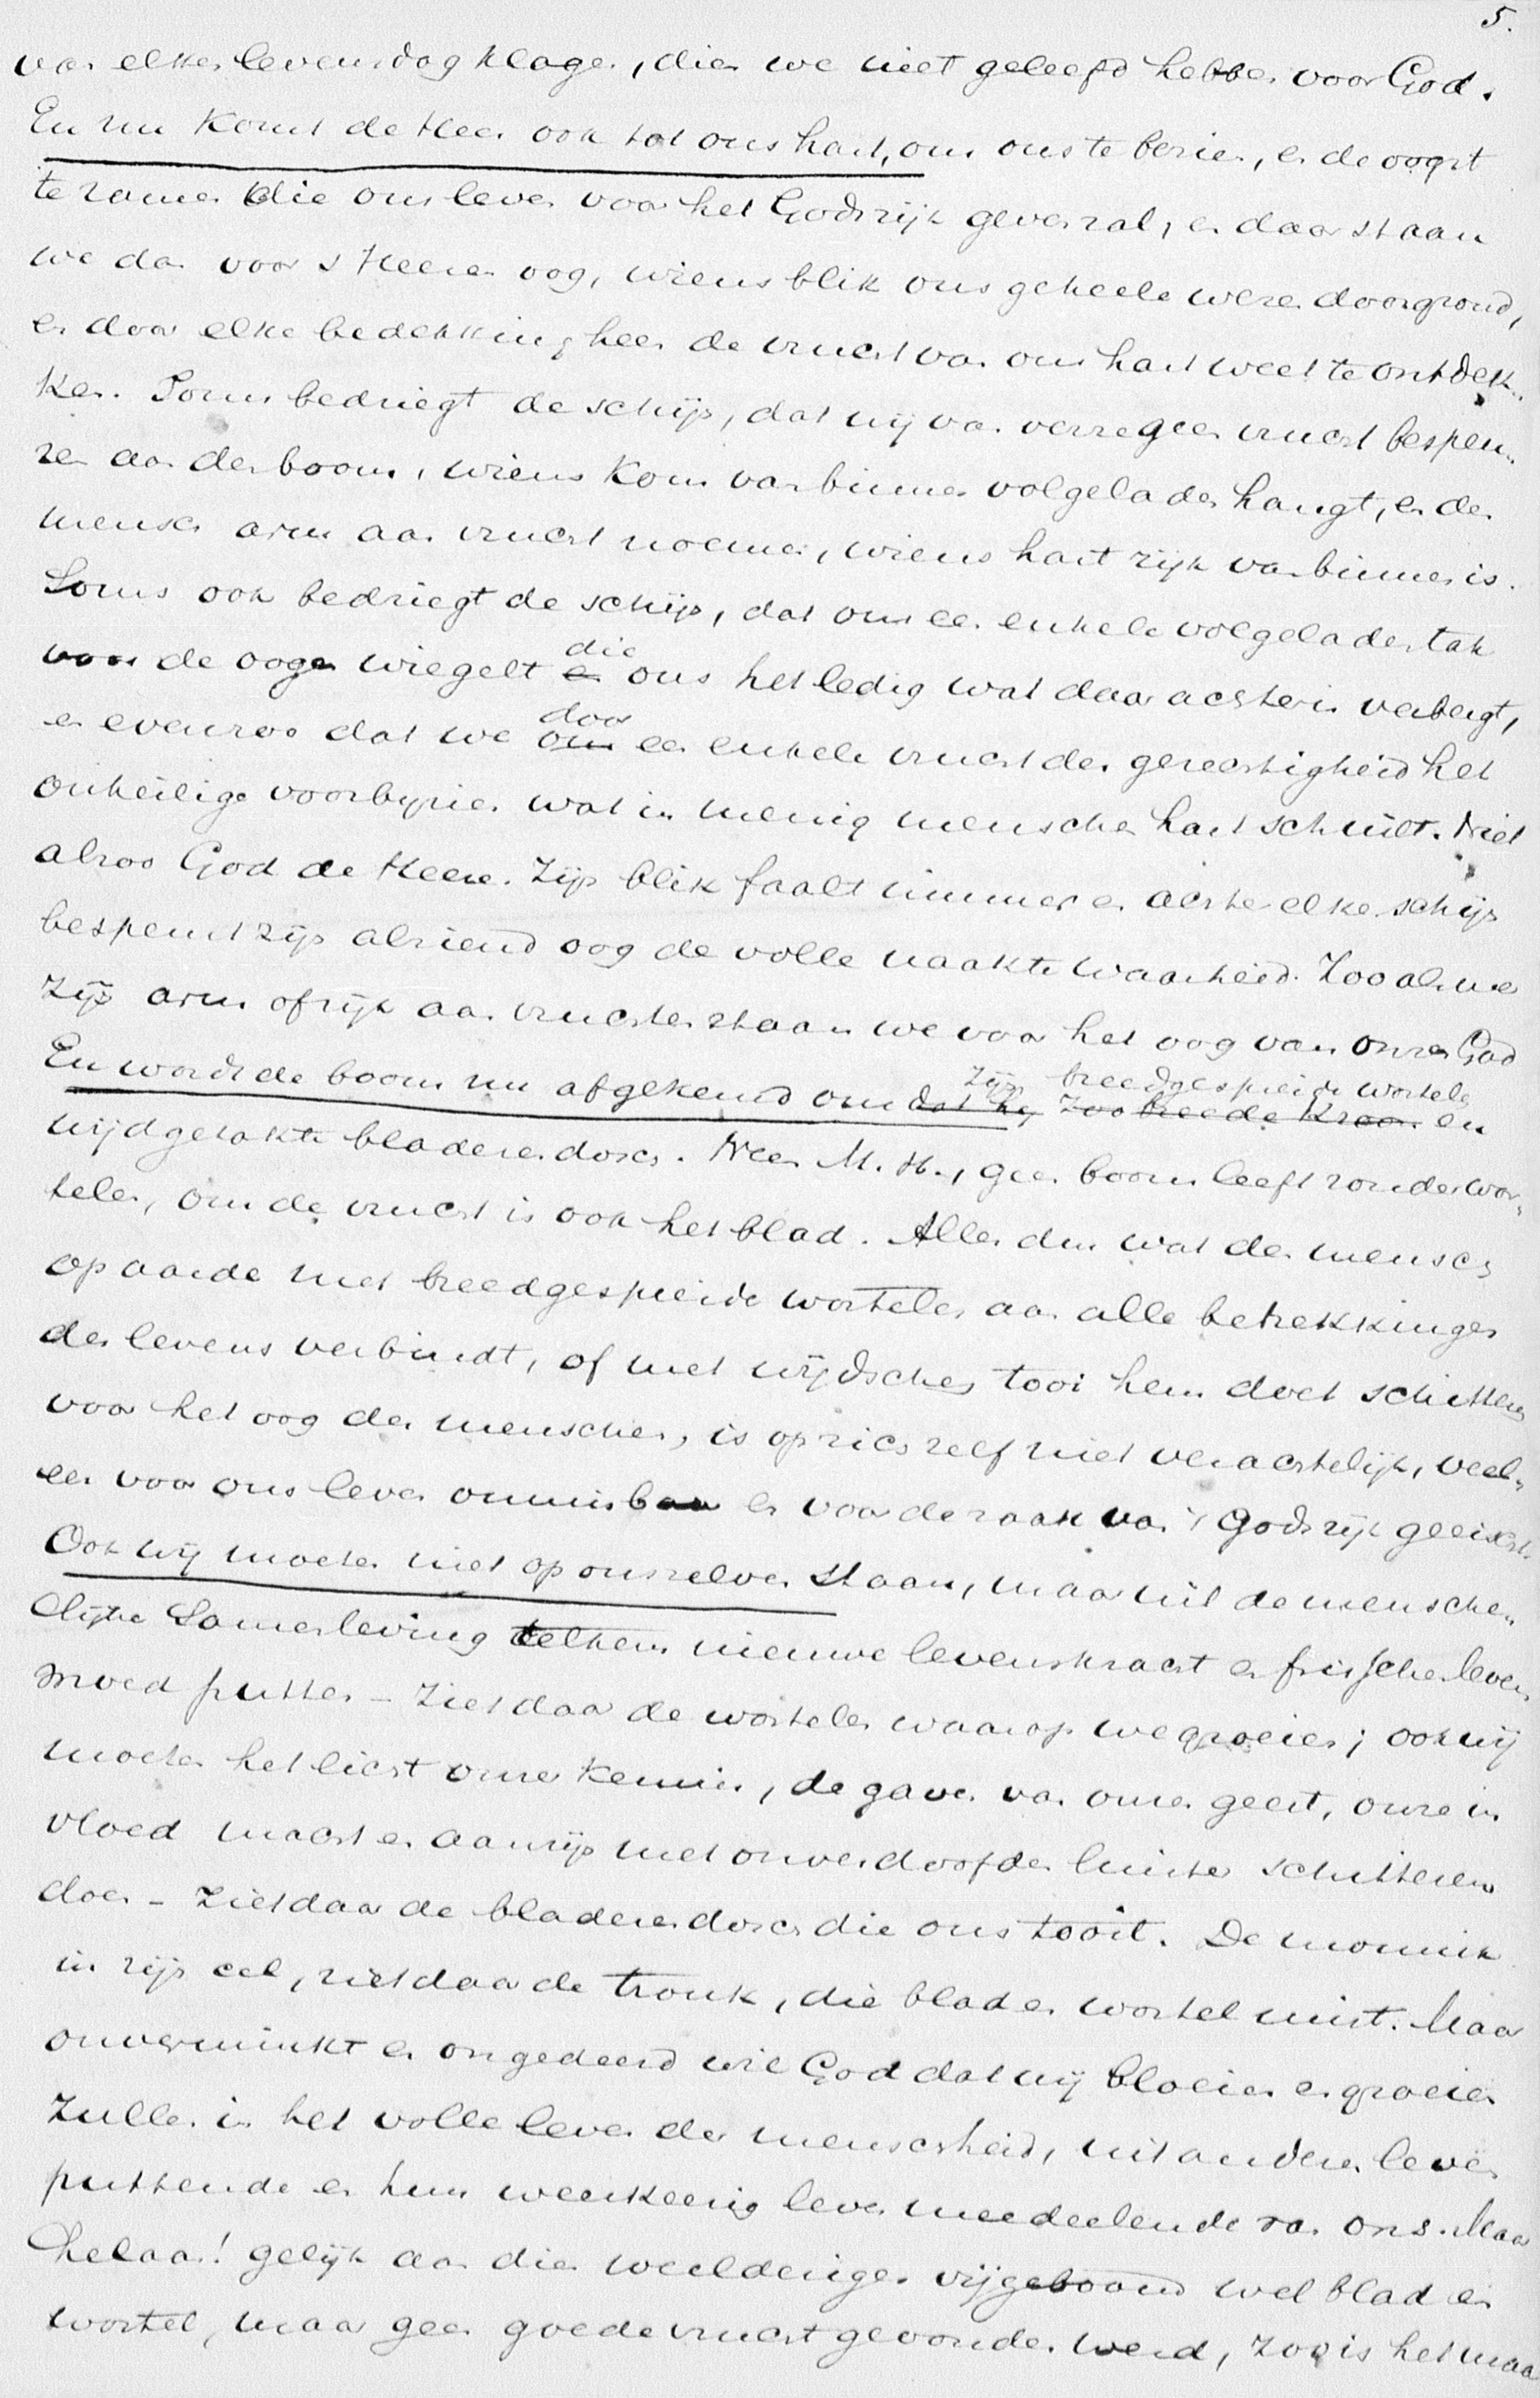 5.
van elken levensdag klagen, dien we niet geleefd hebben voor God.
En nu komt de Heer ook tot ons hart, om ons te bezien, en de oogst
te zamen die ons leven voor het Godsrijk geven zal, en daar staan
we dan voor 's Heeren oog, wiens blik ons geheele wezen doorgrond,
en door elke bedekking heen de vrucht van ons hart weet te ontdek-
ken. Soms bedriegt de schijn, dat wij van verre geen vrucht bespeu-
ren aan den boom, wiens kom van binnen volgeladen hangt, en den
mensch arm aan vrucht noemen, wiens hart rijk van binnen is.
Soms ook bedriegt de schijn, dat ons een enkele volgeladen tak
voor de oogen wiegelt die ons het ledig wat daar achter is verbergt,
en evenzoo dat we door een enkele vrucht der gerechtigheid het
onheilige voorbijzien wat in menig menschenhart schuilt. Niet
alzoo God de Heere. Zijn blik faalt nimmer en achter elke schijn
bespeurt zijn alziend oog de volle naakte waarheid. Zooals we
zijn arm of rijk aan vruchten staan we voor het oog van onzen God
En wordt de boom nu afgekeurd om dat hij zoo breede kroon zijn breedgespreide wortels en
wijdgetakte bladerendosch. Neen M. H., geen boom leeft zonder wor-
telen, om de vrucht is ook het blad. Alles dus wat den mensch
op aarde met breedgespreide wortelen aan alle betrekkingen
des levens verbindt, of met wijdschen tooi hem doet schitteren
voor het oog der menschen, is op zich zelf niet verachtelijk, veel-
eer voor ons leven onmisbaar en voor de zaak van 't Godsrijk geeischt.
Ook wij moeten niet op onszelven staan, maar uit de menschen-
lijke Samenleving telkens nieuwe levenskracht en frisschen levens
moed putten - Ziet daar de wortelen waarop we groeien; ook wij
moeten het licht onzer kennis, de gaven van onzen geest, onze in
vloed macht en aanzijn met onverdoofden luister schitteren
doen - Ziet daar de bladerendosch die ons tooit. De monnik
in zijn cel, ziet daar de tronk, die blad en wortel mist. Maar
onverminkt en ongedeerd wil God dat wij bloeien en groeien
zullen in het volle leven der menschheid, uit anderen leven
puttende en hun weerkeerig leven meedeelende van ons. Maar
helaas! gelijk aan dien weelderigen vijgeboom wel blad en
wortel, maar geen goede vrucht gevonden werd, zoo is het maar